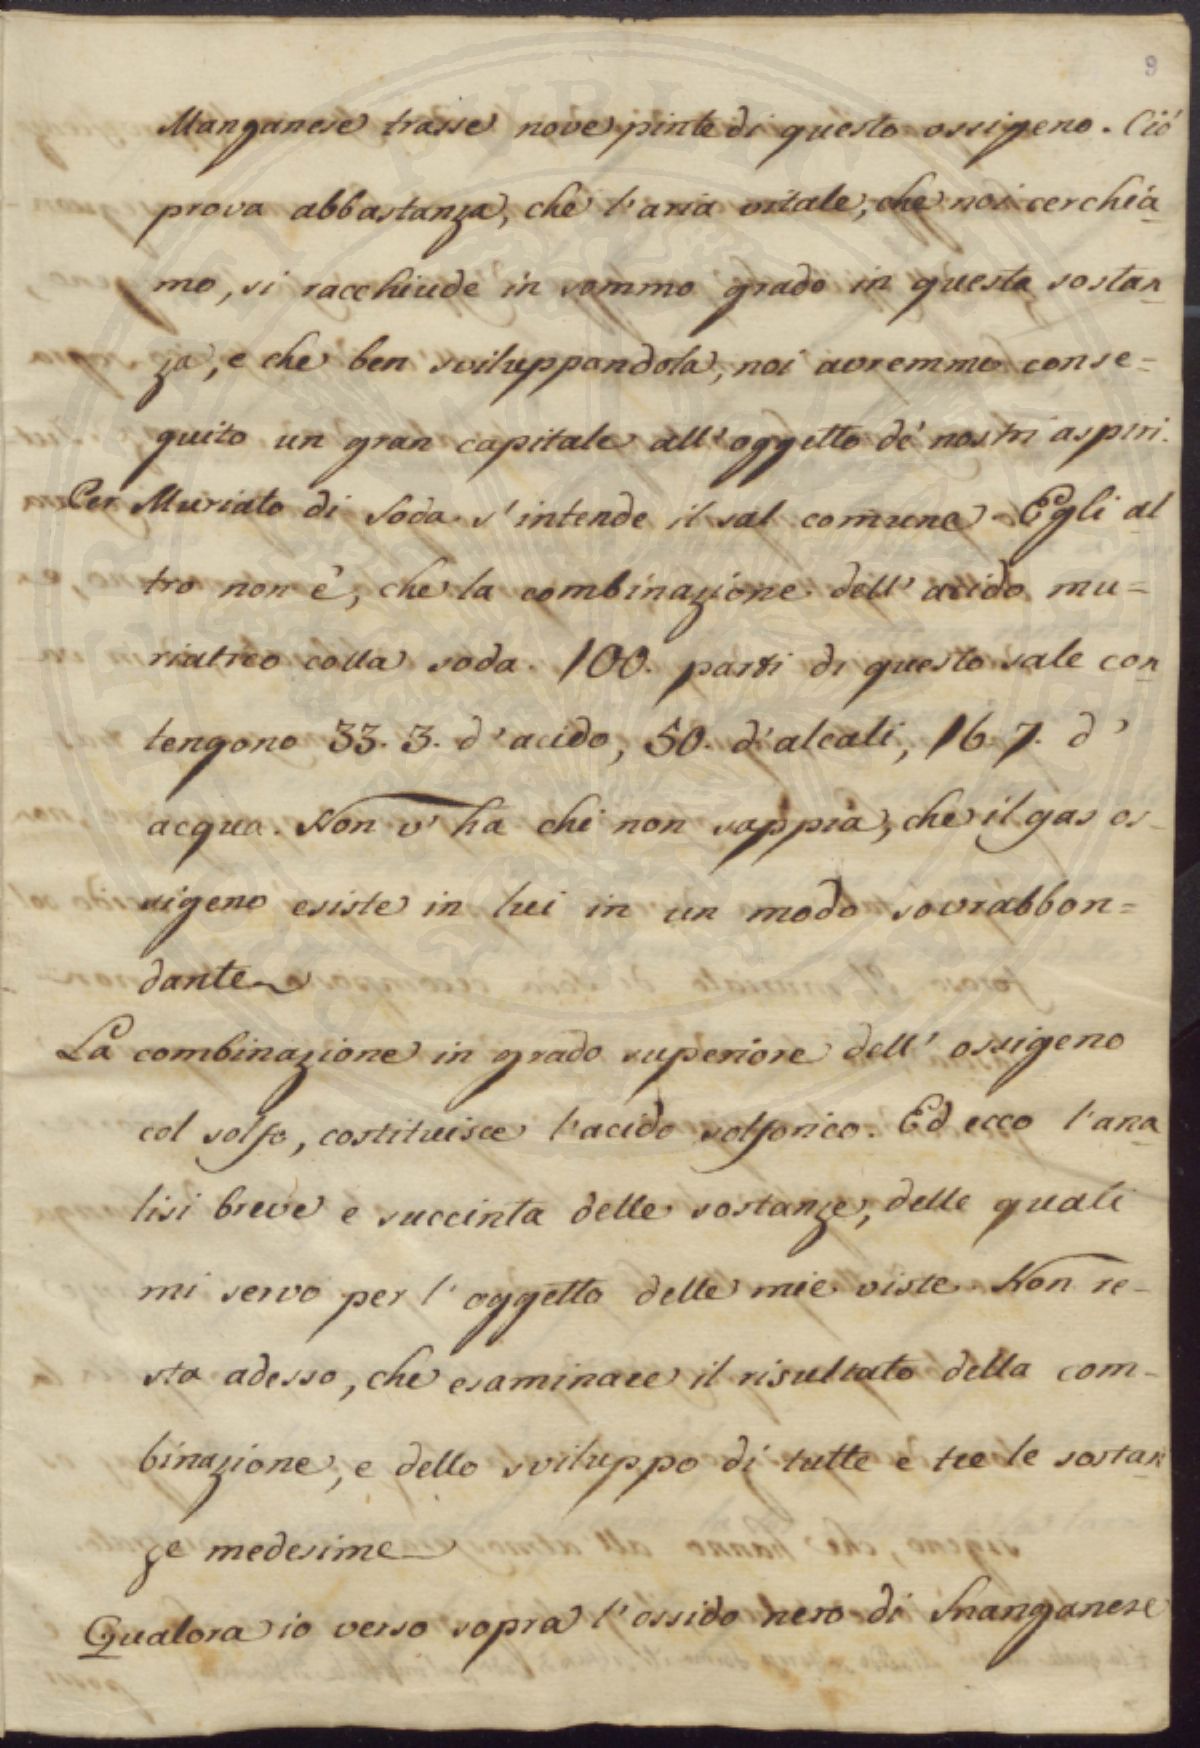 9
Manganese trasse nove pinte di questo ossigeno. Ciò
prova abbastanza, che l'aria vitale, che noi cerchia-
mo, si racchiude in sommo grado in questa sostan-
za, e che ben sviluppandola, noi avremmo conse=
guito un gran capitale all'oggetto de' nostri aspiri.
Per Muriato di Soda s'intende il sal comune. Egli al
tro non è, che la combinazione dell'acido mu=
riatico colla soda. 100. parti di questo sale con
tengono 33. 3. d'acido, 50. d'alcali, 16. 7. d'
acqua. Non v'ha chi non sappia, che il gas os-
sigeno esiste in lui in un modo sovrabbon=
dante
La combinazione in grado superiore dell'ossigeno
col solfo, costituisce l'acido solforico. Ed ecco l'ana
lisi breve e succinta delle sostanze, delle quali
mi servo per l'oggetto delle mie viste. Non re-
sta adesso, che esaminare il risultato della com-
binazione, e dello sviluppo di tutte e tre le sostan
ze medesime
Qualora io verso sopra l'ossido nero di Manganese